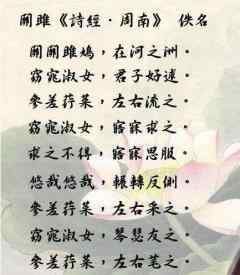 關雎《詩經·周南》 佚名
關關雎鳩，在河之洲。
窈窕淑女，君子好逑。
參差荇菜，左右流之。
窈窕淑女，寤寐求之。
求之不得，寤寐思服。
悠哉悠哉，輾轉反側。
參差荇菜，左右采之。
窈窕淑女，琴瑟友之。
參差荇菜，左右芼之。